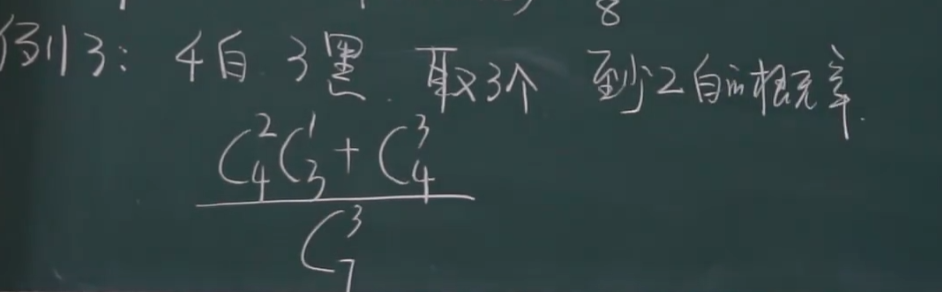 8
例3: 4白 3黑. 取3个 至少2白的概率.
C₄²C₃¹ + C₄³
C₇³